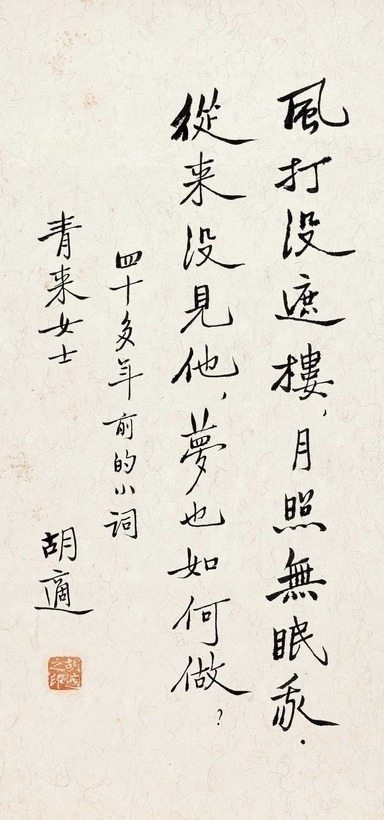 風打没遮樓，月照無眠我。
從来没見他，夢也如何做？
四十多年前的小詞
青来女士
胡適
胡適之印